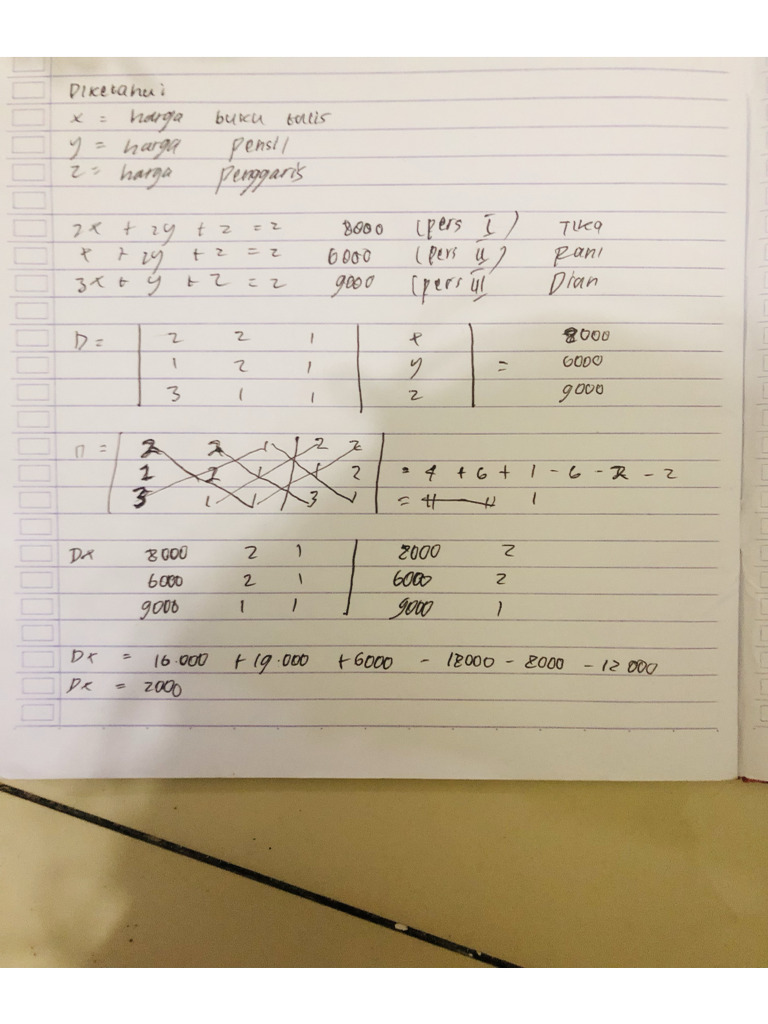 Diketahui
x = harga buku tulis
y = harga pensil
z = harga penggaris
2x + 2y + z = 2 8000 (pers I) Tika
x + 2y + z = 2 6000 (pers II) Rani
3x + y + z = 2 9000 (pers III) Dian
D = | 2 2 1 | x | 8000
1 2 1 | y | = 6000
3 1 1 | z | 9000
D = | 2 2 1 | 2 2 |
1 2 1 | 1 2 | = 4 + 6 + 1 - 6 - 2 - 2
3 1 1 | 3 1 | = 1
Dx 8000 2 1 | 8000 2
6000 2 1 | 6000 2
9000 1 1 | 9000 1
Dx = 16.000 + 19.000 + 6000 - 18000 - 8000 - 12 000
Dx = 2000